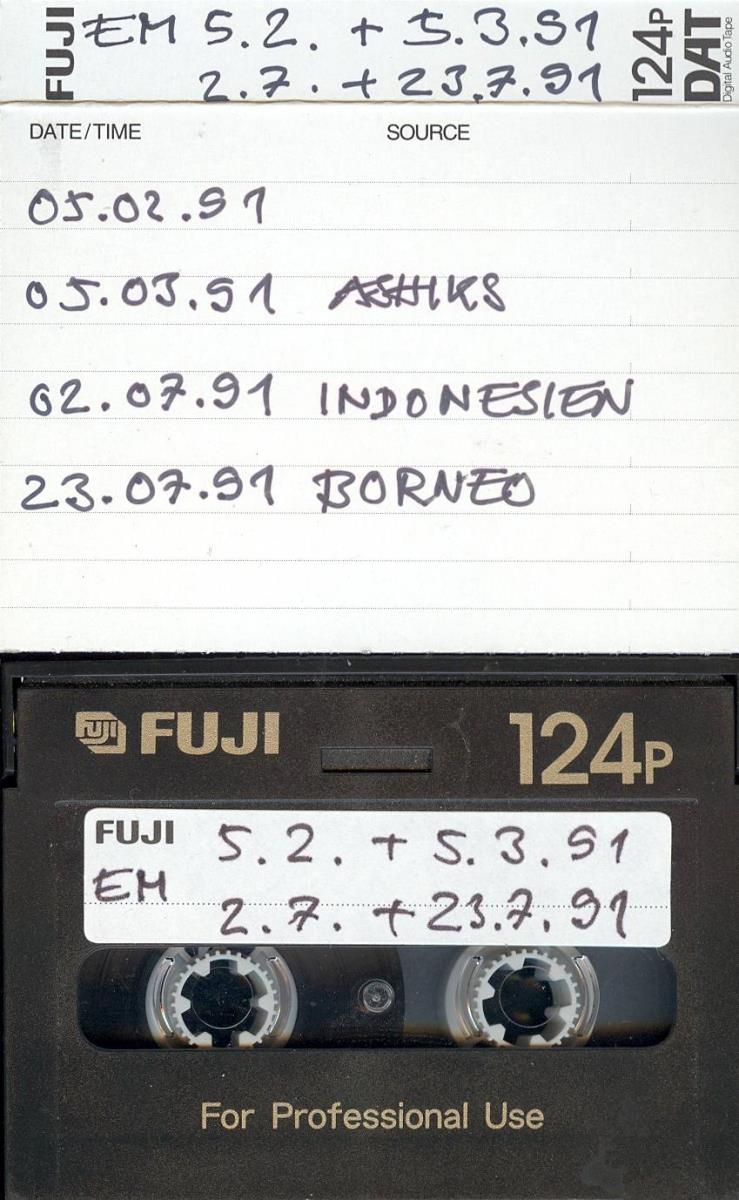 FUJI EM 5.2. + 5.3.91 124P DAT Digital Audio Tape
2.7. + 23.7.91
DATE/TIME SOURCE
05.02.91
05.03.91 ASHIKS
02.07.91 INDONESIEN
23.07.91 BORNEO
FUJI FUJI 124P
FUJI 5.2. + 5.3.91
EM 2.7. + 23.7.91
For Professional Use